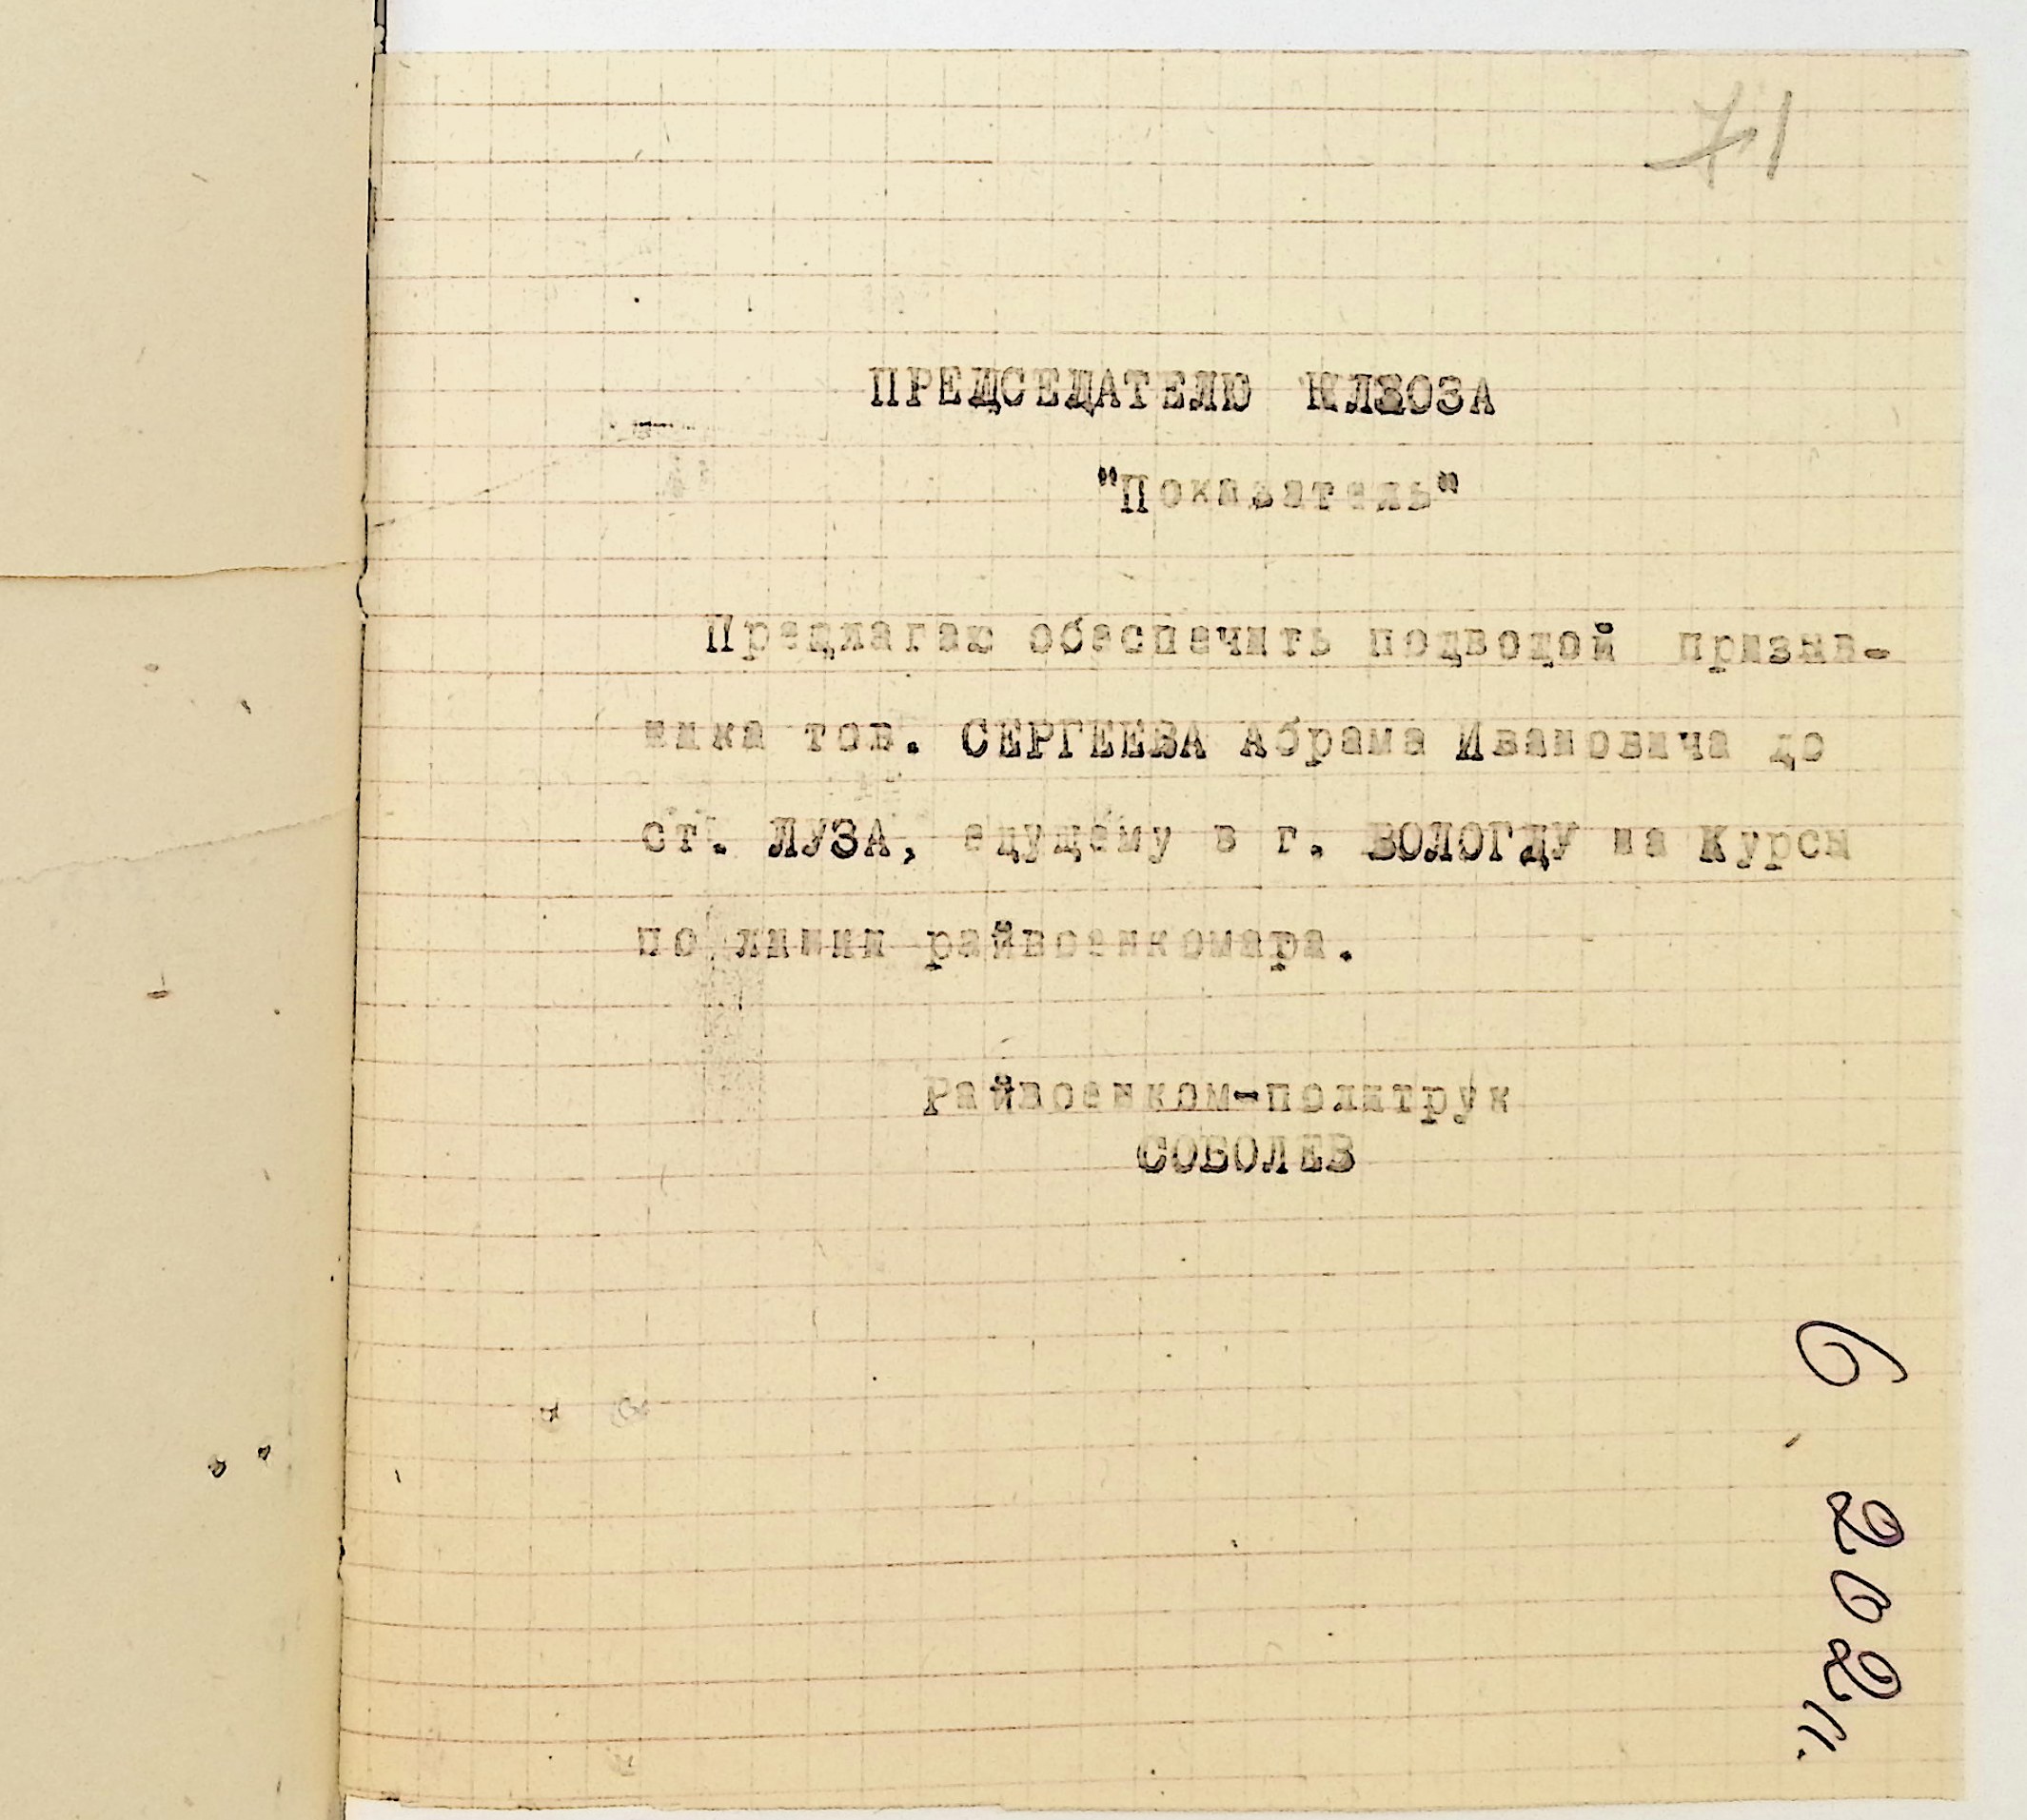 71
ПРЕДСЕДАТЕЛЮ КЛХОЗА
"Показатель"
Предлагаю обеспечить подводой призыв-
ника тов. СЕРГЕЕВА Абрама Ивановича до
ст. ЛУЗА, едущему в г. ВОЛОГДУ на Курсы
по линии райвоенкомара.
Райвоенком-политрук
СОБОЛЕВ